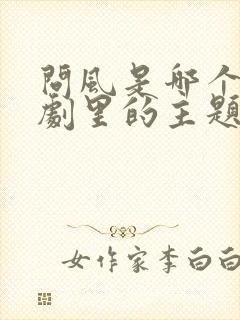 問風是哪个
劇里的主題
女作家李白白